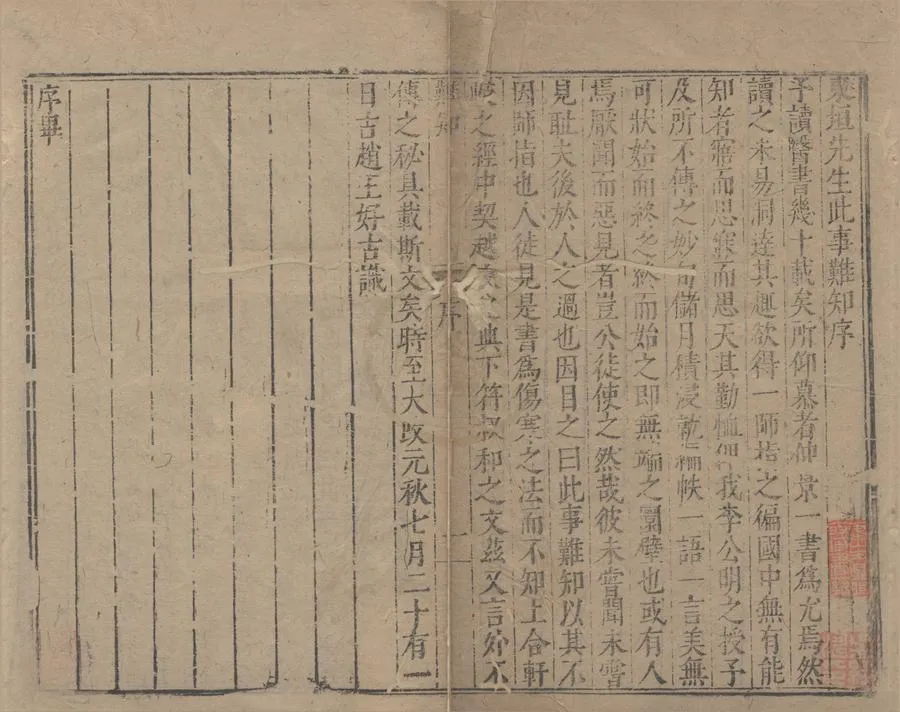 東垣先生此事難知序
予讀醫書幾十載矣所仰慕者仲景一書爲尤焉然
讀之未易洞達其趣欲得一師指之徧國中無有能
知者寤而思寐而思天其勤恤俾我李公明之授予
及所不傳之妙旬儲月積浸就編帙一語一言美無
可狀始而終之終而始之即無端之圜璧也或有人
焉厭聞而惡見者豈公徒使之然哉彼未嘗聞未嘗
見耻夫後於人之過也因目之曰此事難知以其不
因師指也人徒見是書爲傷寒之法而不知上合軒
岐之經中契越人之典下符叔和之文兹又言外不
難知 序 一
傳之秘具載斯文矣時至大改元秋七月二十有一
日古趙王好古識
序畢